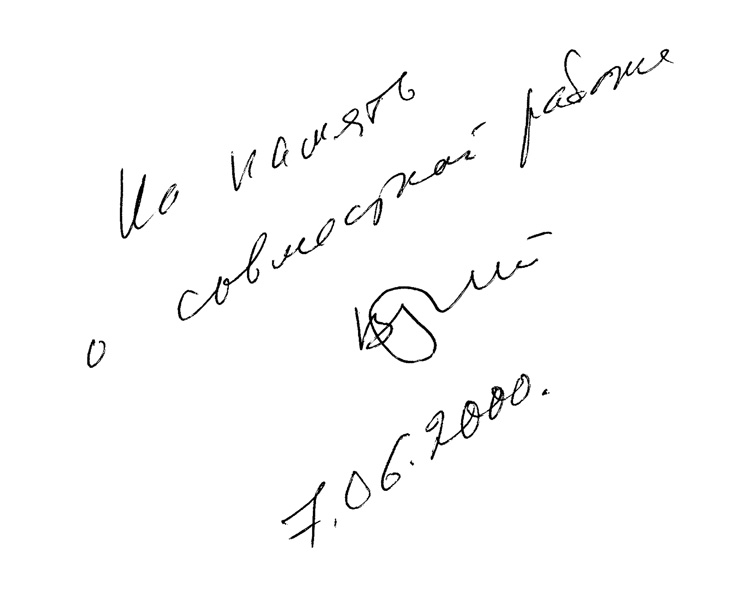 На память
о совместной работе
7.06.2000.